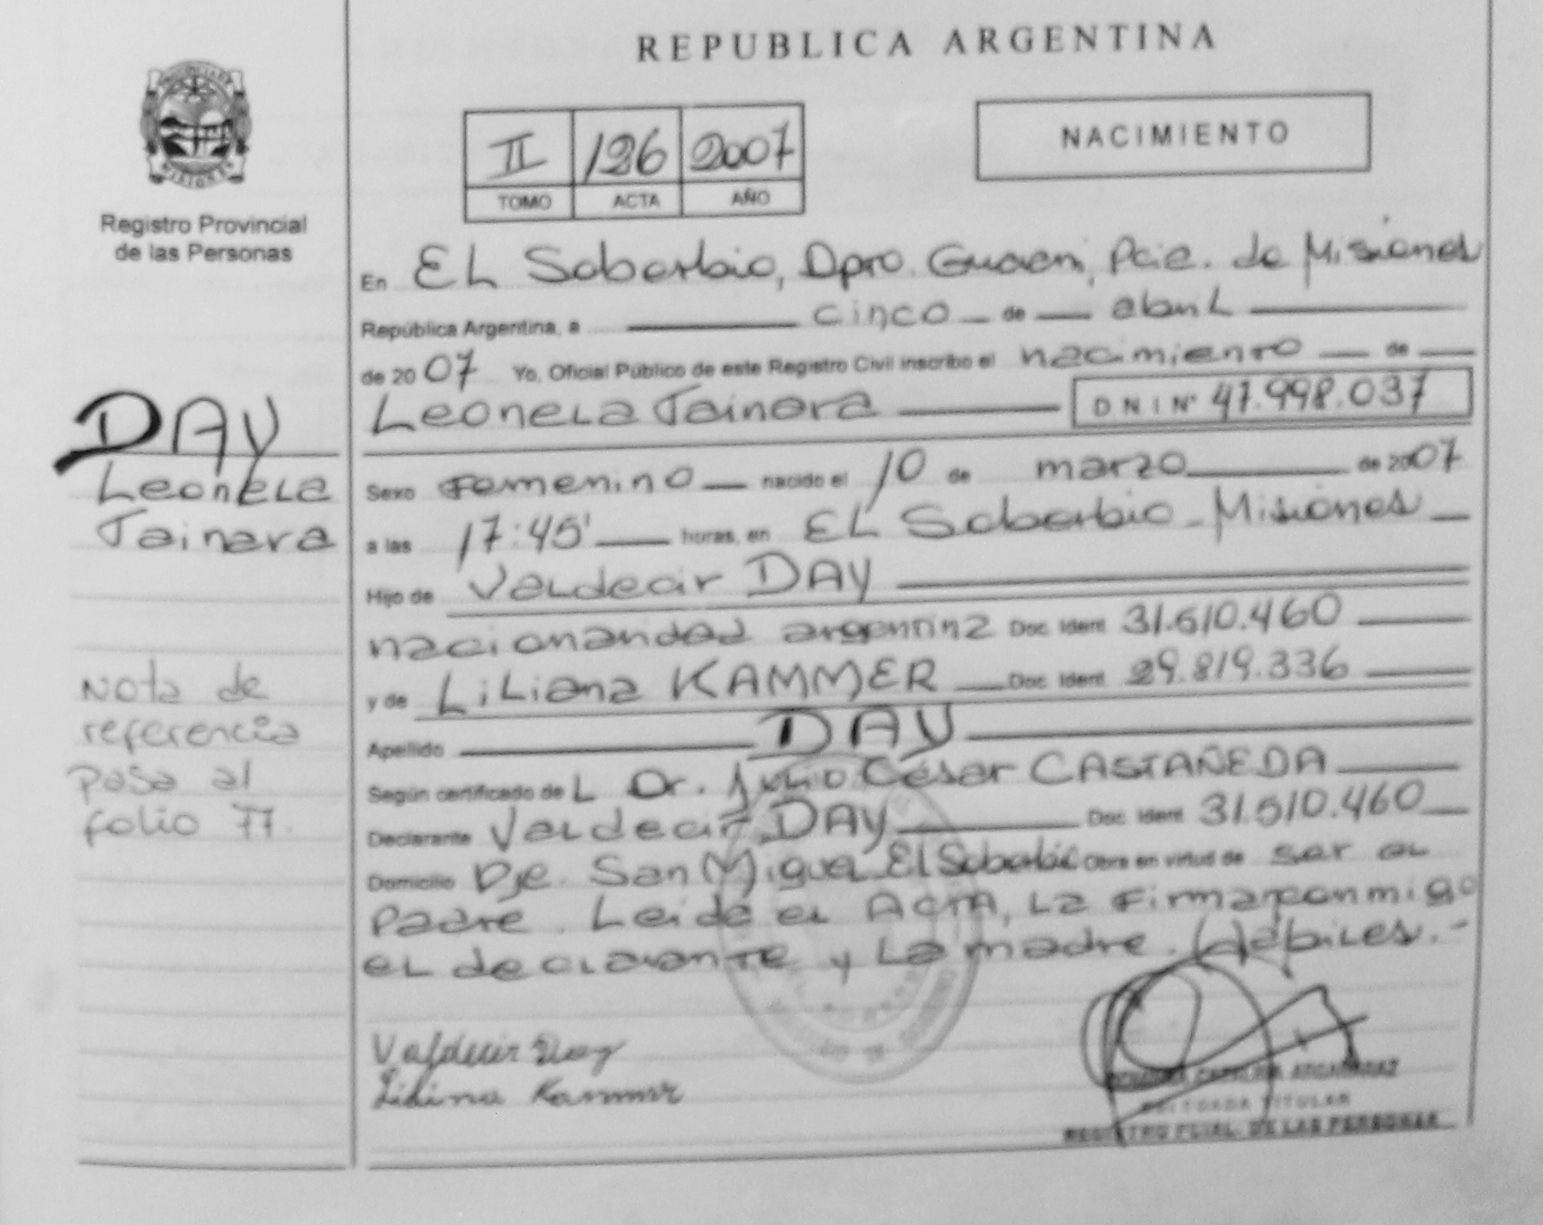 REPUBLICA ARGENTINA
MISIONES
Registro Provincial
de las Personas
II 126 2007
TOMO ACTA AÑO
NACIMIENTO
En EL Soberbio, Dpto. Guarani, Pcia. de Misiones
República Argentina, a cinco de abril
de 2007 Yo, Oficial Público de este Registro Civil inscribo el nacimiento de
Leonela Tainara DNI Nº 47.998.037
Sexo Femenino nacido el 10 de marzo de 2007
a las 17:45' horas, en EL Soberbio - Misiones
Hijo de Valdecir DAY
nacionandad argentina Doc. Ident. 31.510.460
y de Liliana KAMMER Doc. Ident. 29.819.336
Apellido DAY
Según certificado de L Dr. Julio César CASTAÑEDA
Declarante Valdecir DAY Doc. Ident. 31.510.460
Domicilio Pje. San Miguel El Soberbio Obra en virtud de ser el
Padre. Leida el ACTA, La Firman conmigo
el declarante y La madre. Hábiles.-
Valdecir Day
Liliana Kammer
TITULAR
REGISTRO PCIAL. DE LAS PERSONAS
DAY
Leonela
Tainara
Nota de
referencia
pasa al
folio 77.